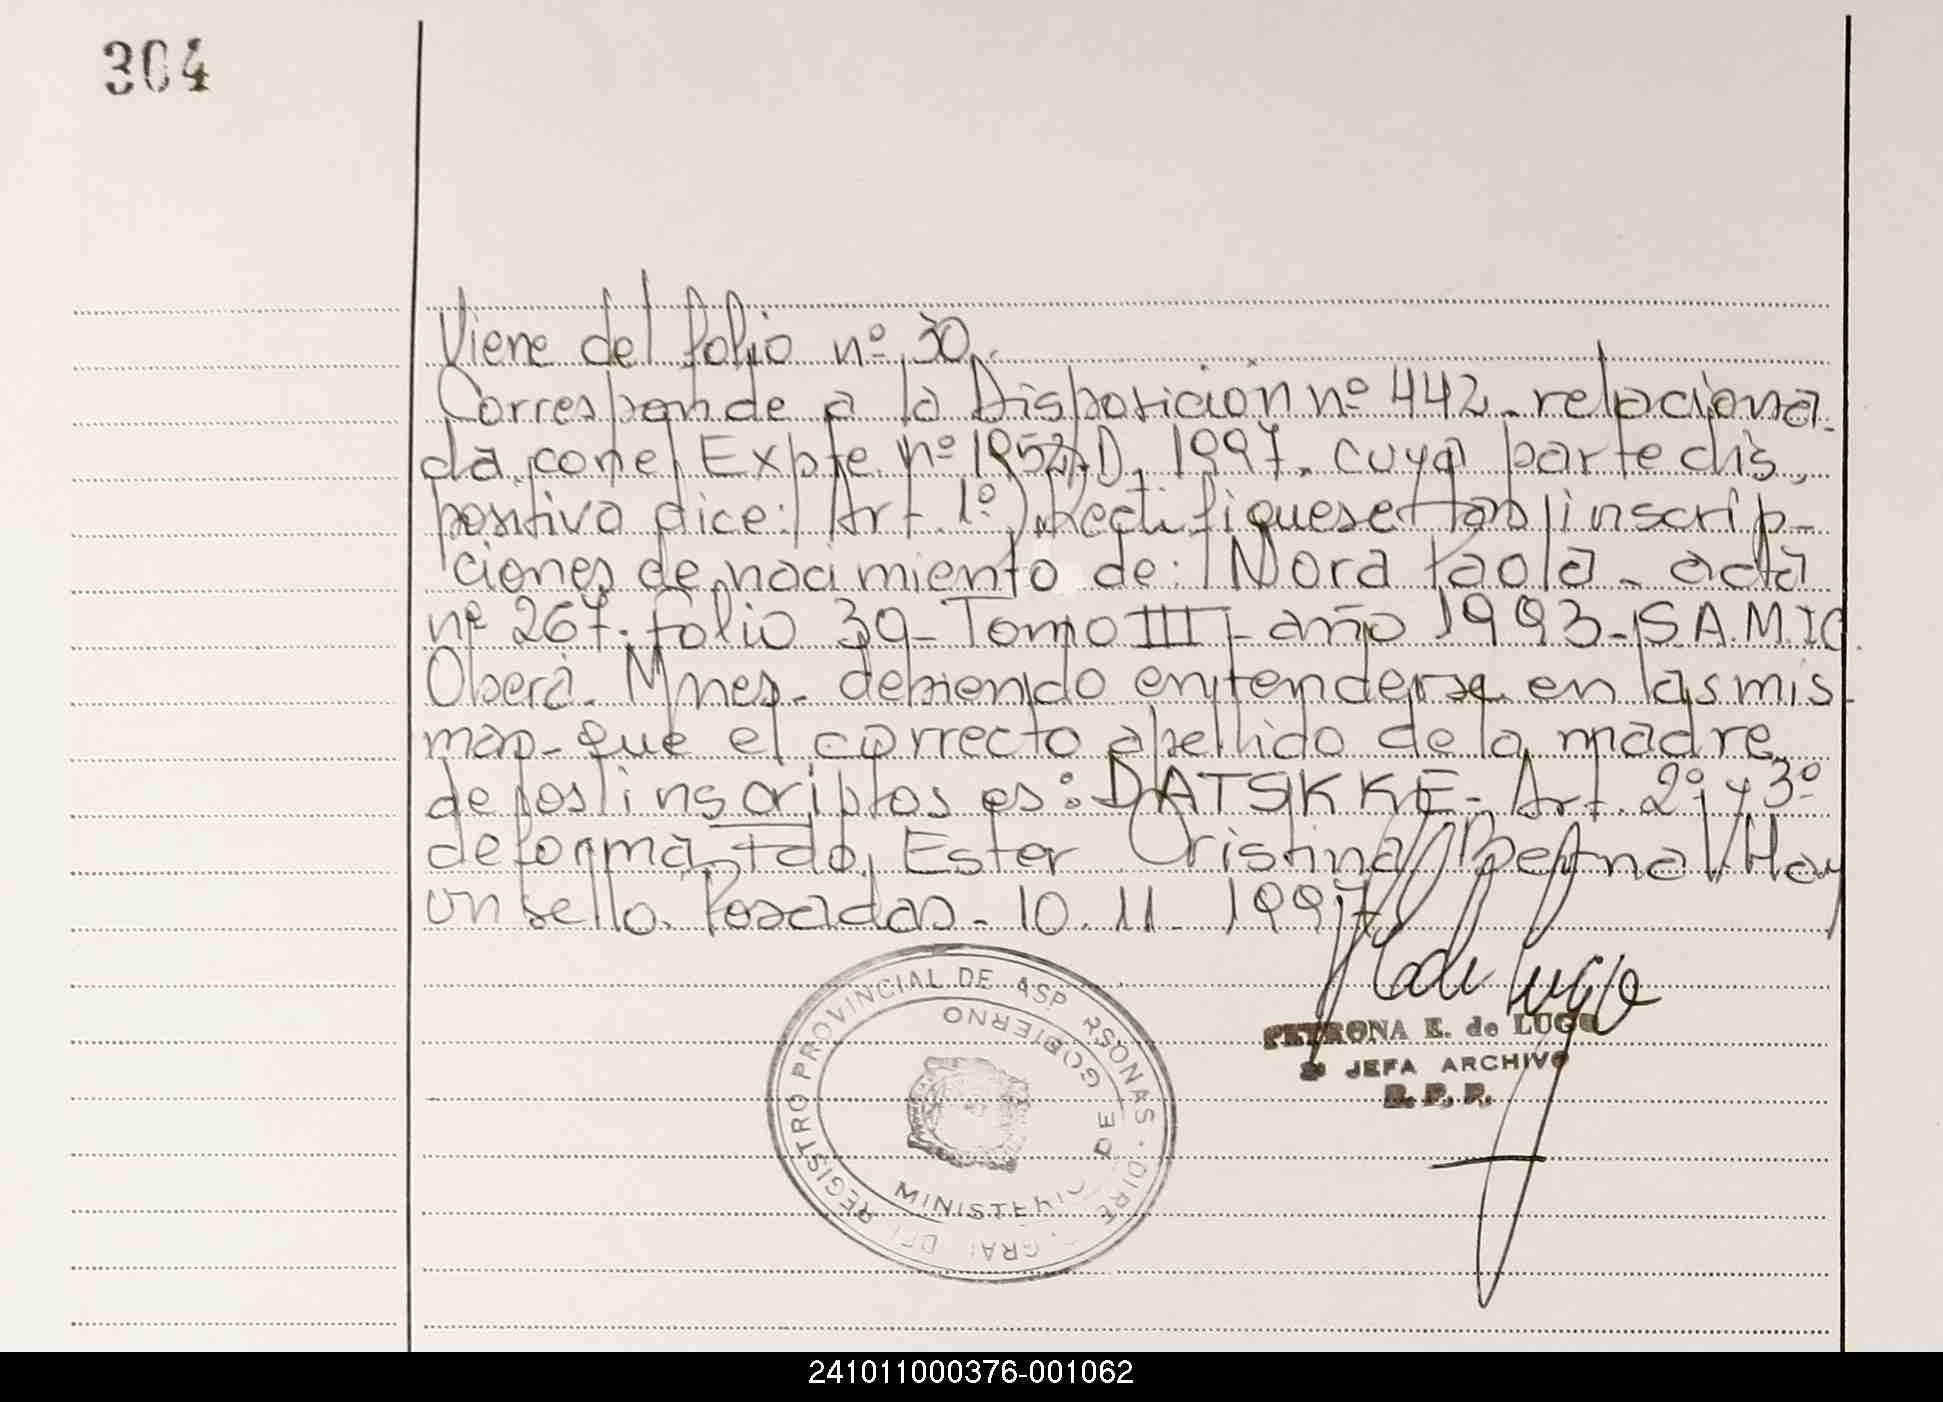 304
Viene del folio nº 30.
Corresponde a la Disposición nº 442. relaciona-
da con el Expte nº 1952.D. 1997. cuya parte dis-
positiva dice: Art. 1º) Rectifiquese las inscrip-
ciones de nacimiento de: Nora Paola - acta
nº 267. folio 39 - Tomo III - año 1993 - S.A.M.I.C.
Oberá. Mnes. debiendo entenderse en las mis-
mas - que el correcto apellido de la madre
de los inscriptos es: DATSKKE - Art. 2º y 3º
de forma Fdo. Ester Cristina Bernal Hay
un sello. Posadas - 10. 11 - 1997
REGISTRO PROVINCIAL DE PERSONAS
MINISTERIO DE GOBIERNO
PETRONA E. de LUGO
JEFA ARCHIVO
R. P. P.
241011000376-001062